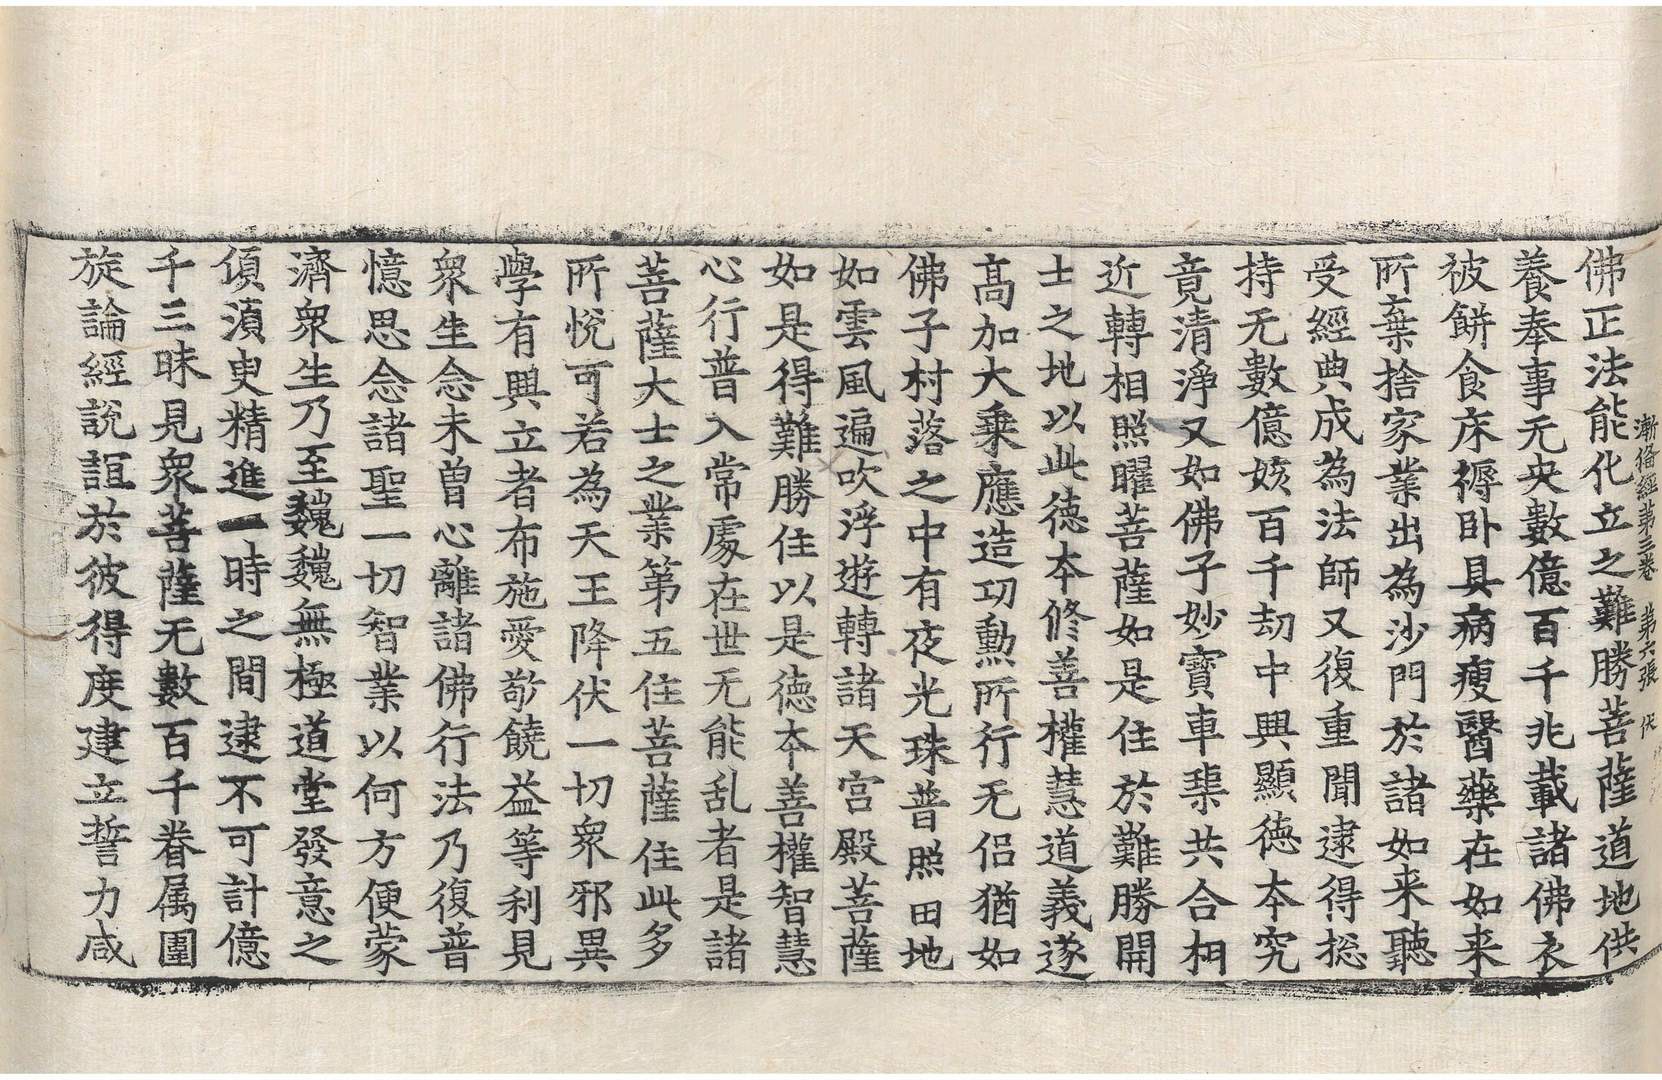 漸俻經第三卷　第六張　伏
佛正法能化立之難勝菩薩道地供
養奉事无央數億百千兆載諸佛衣
被餅食床褥卧具病瘦醫藥在如来
所棄捨家業出為沙門於諸如来聽
受經典成為法師又復重聞逮得揔
持无數億姟百千劫中興顯徳夲究
竟清淨又如佛子妙寶車𤦲共合相
近轉相照曜菩薩如是住於難勝開
士之地以此徳夲修善權慧道義遂
髙加大乗應造功勲所行无侣猶如
佛子村落之中有夜光珠普照田地
如雲風遍吹浮遊轉諸天宫殿菩薩
如是得難勝住以是徳夲善權智慧
心行普入常處在世无能乱者是諸
菩薩大士之業第五住菩薩住此多
所悅可若為天王降伏一切衆邪異
學有興立者布施愛敬饒益等利見
衆生念未曽心離諸佛行法乃復普
憶思念諸聖一切智業以何方便蒙
濟衆生乃至巍巍無極道堂發意之
傾湏臾精進一時之間逮不可計億
千三昧見衆菩薩无數百千眷属圍
旋論經說誼於彼得度建立誓力咸